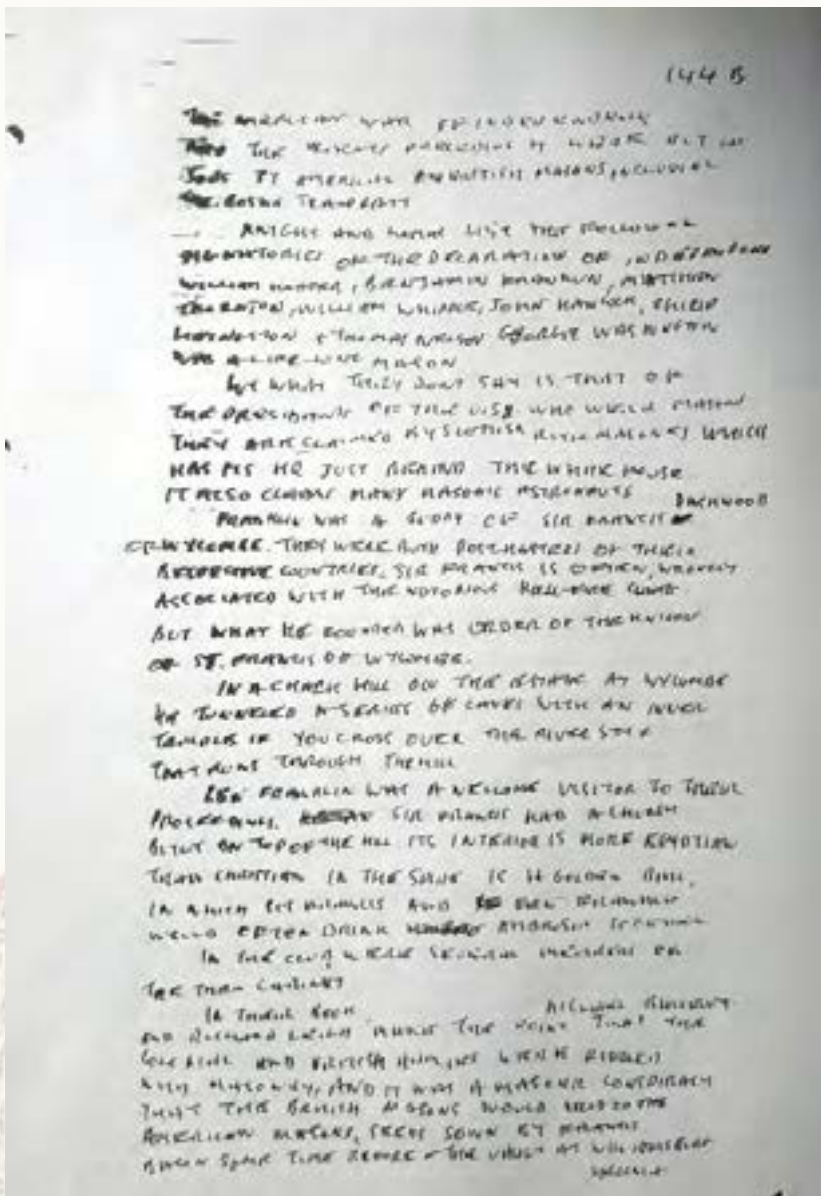 144 B
THE AMERICAN WAR OF INDEPENDENCE
THE
BY AMERICAN AND BRITISH MASONS, INCLUDING
THE BOSTON TEAPARTY
KNIGHT AND LOMAS LIST THE FOLLOWING
SIGNATORIES OF THE DECLARATION OF INDEPENDENCE
WILLIAM HOOPER, BENJAMIN FRANKLIN, MATTHEW
THORNTON, WILLIAM WHIPPLE, JOHN HANCOCK, PHILIP
LIVINGSTON & THOMAS NELSON GEORGE WASHINGTON
WAS A LIFE-LONG MASON
WHAT THEY DON'T SAY IS THAT OF
THE PRESIDENTS OF THE USA WHO WERE MASONS
THEY ARE CLAIMED BY SCOTTISH RITE MASONRY WHICH
HAS ITS HQ JUST BEHIND THE WHITE HOUSE
IT ALSO CLAIMS MANY MASONIC ASTRONAUTS
DASHWOOD
FRANKLIN WAS A BUDDY OF SIR FRANCIS
OF WYCOMBE. THEY WERE BOTH POSTMASTERS OF THEIR
RESPECTIVE COUNTRIES, SIR FRANCIS IS OFTEN, WRONGLY
ASSOCIATED WITH THE NOTORIOUS HELL-FIRE CLUB.
BUT WHAT HE FOUNDED WAS ORDER OF THE KNIGHTS
OF ST. FRANCIS OF WYCOMBE.
IN A CHALK HILL ON THE ESTATE AT WYCOMBE
HE TUNNELED A SERIES OF CAVES WITH AN INNER
TEMPLE IF YOU CROSS OVER THE RIVER STYX
THAT RUNS THROUGH THE HILL
BEN FRANKLIN WAS A WELCOME VISITOR TO THESE
PROCEEDINGS. SIR FRANCIS HAD A CHURCH
BUILT ON TOP OF THE HILL ITS INTERIOR IS MORE EGYPTIAN
THAN CHRISTIAN IN THE SPIRE IS A GOLDEN BALL,
IN WHICH SIR FRANCIS AND BEN FRANKLIN
WOULD OFTEN DRINK
IN THE CLUB WERE SEVERAL MEMBERS OF
THE THEN CABINET
IN THEIR BOOK MICHAEL BAIGENT
AND RICHARD LEIGH MAKE THE POINT THAT THE
COLONIAL AND BRITISH WERE RIDDLED
WITH MASONRY, AND IT WAS A MASONIC CONSPIRACY
THAT THE BRITISH MASONS WOULD TO THE
AMERICAN MASONS, SEEDS SOWN BY FRANCIS
BACON SOME TIME BEFORE THE VAULT AT WILLIAMSBURG